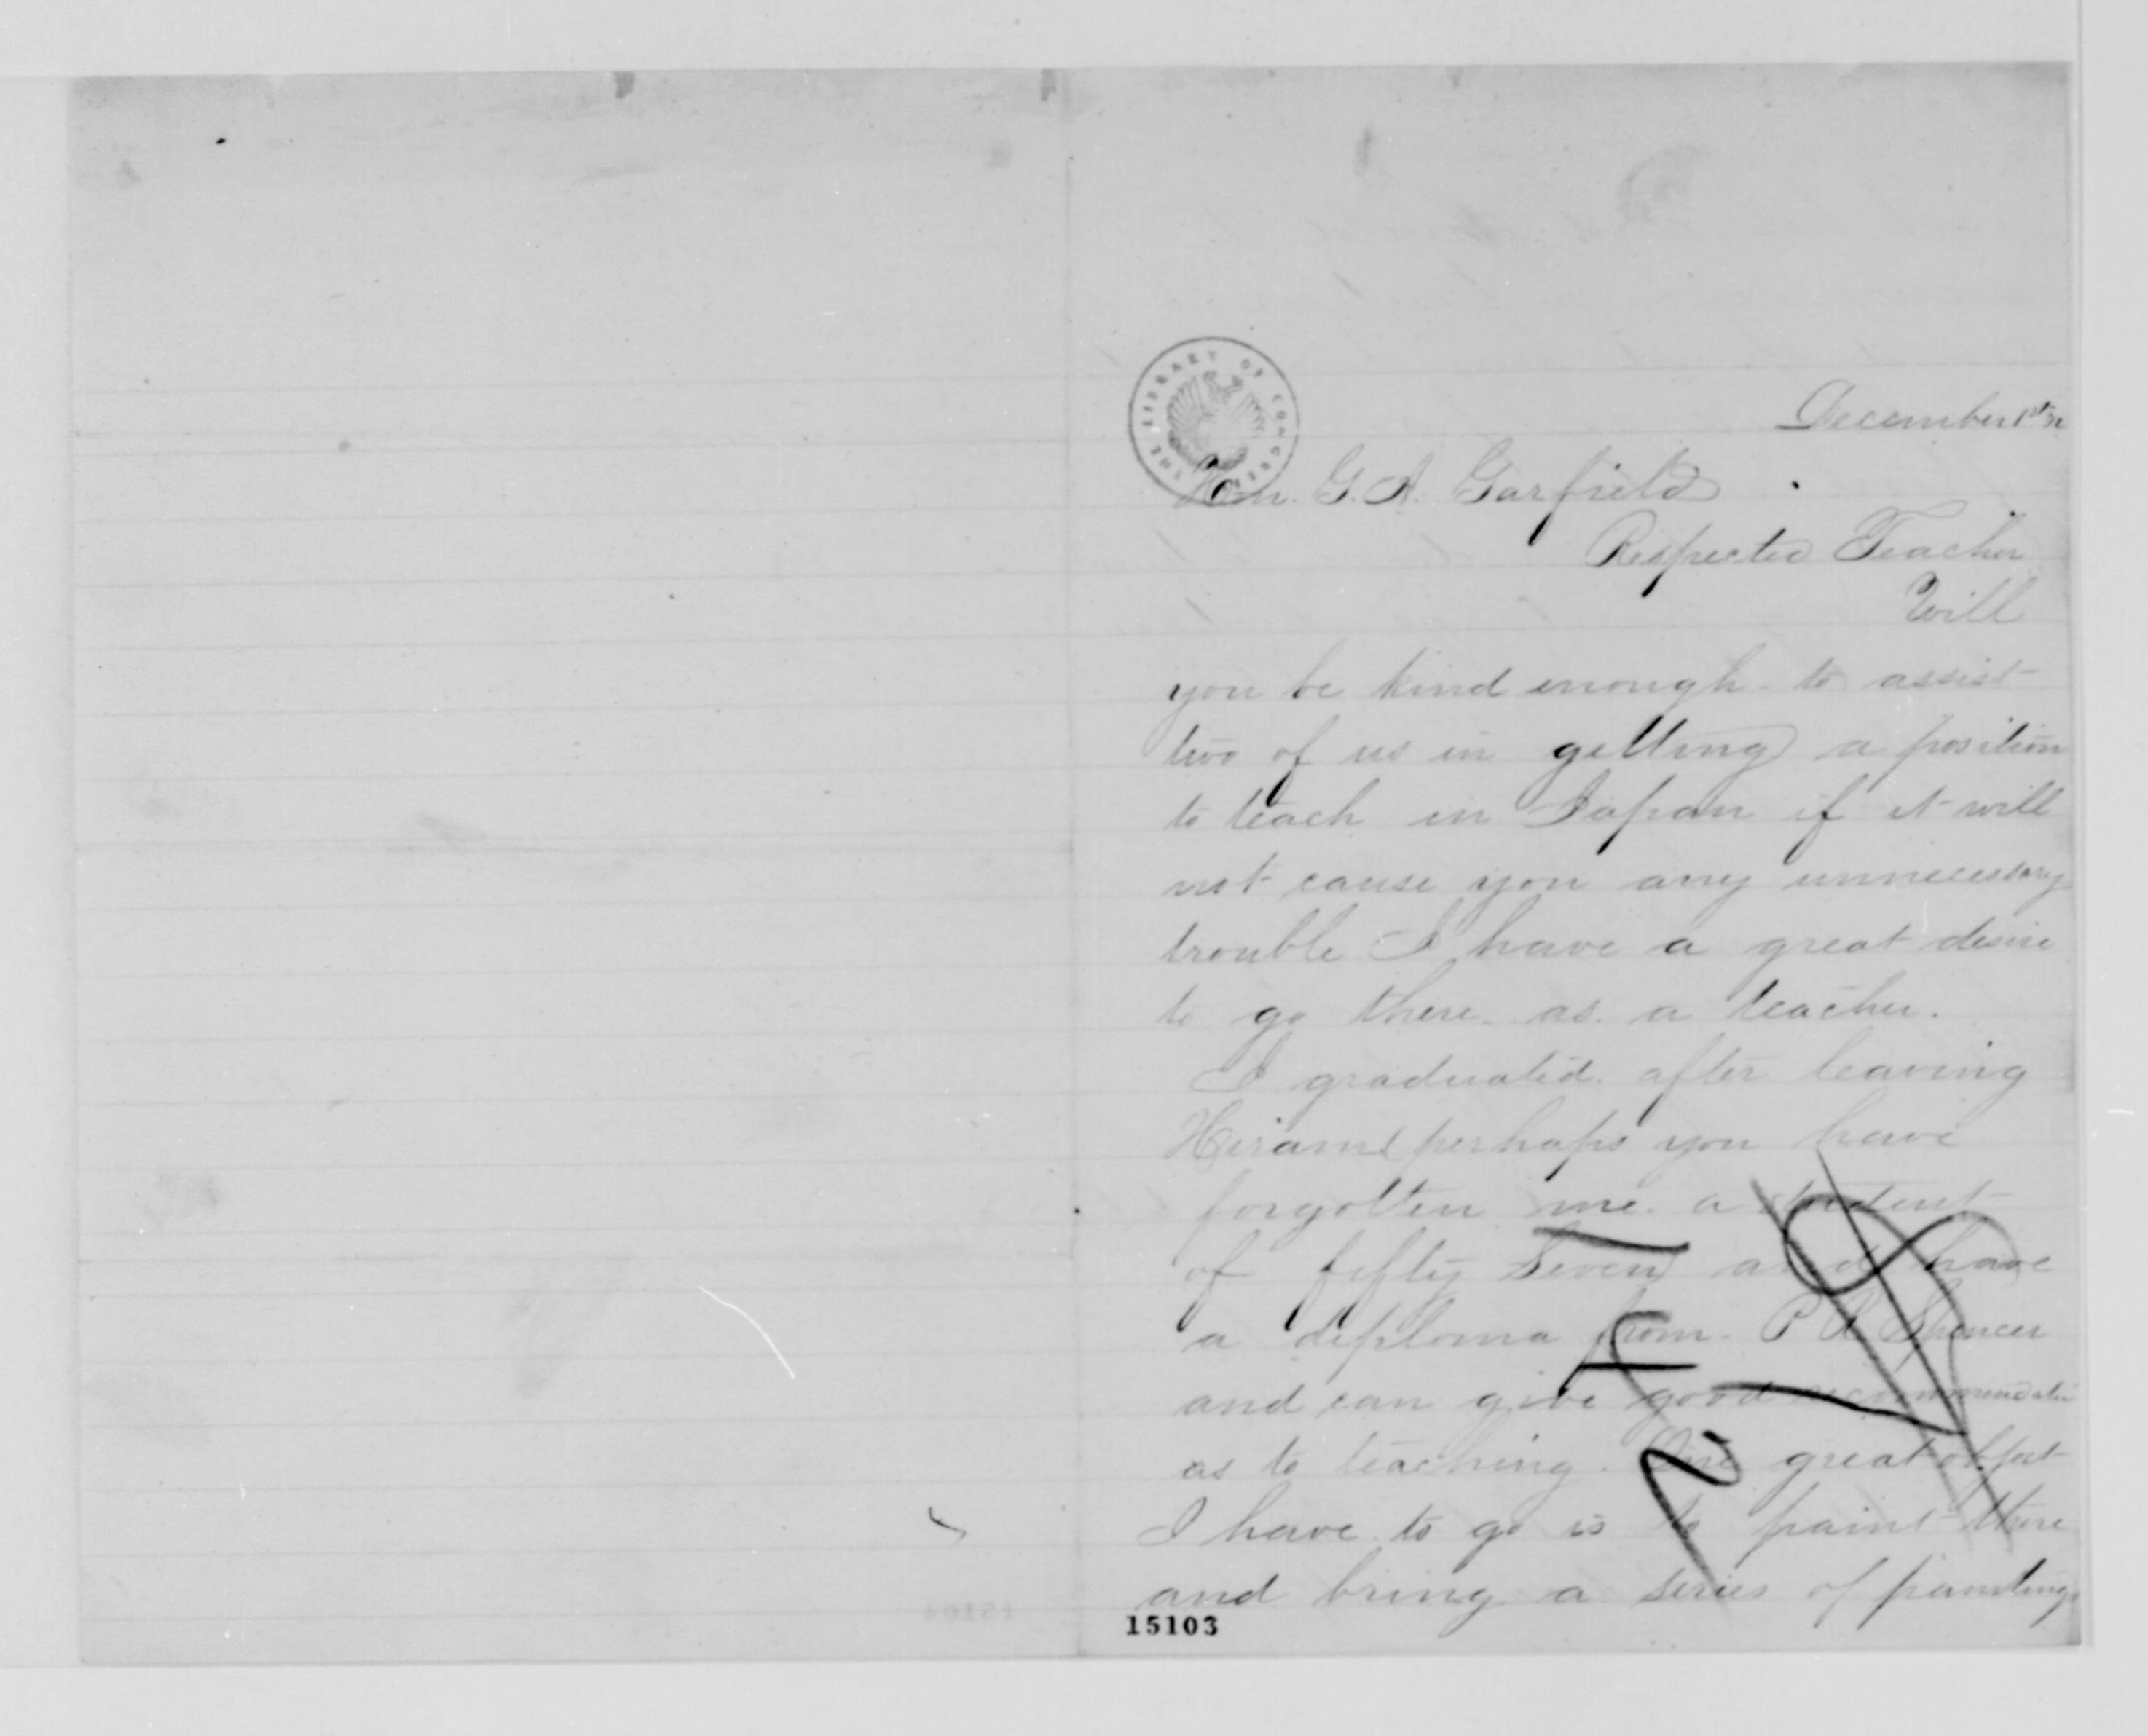 THE LIBRARY OF CONGRESS
December 1st
Hon. G. A. Garfield
Respected Teacher
Will
you be kind enough to assist
two of us in getting a position
to teach in Japan if it will
not cause you any unnecessary
trouble I have a great desire
to go there as a teacher.
I graduated after leaving
Heiram perhaps you have
forgotten me a student
of fifty seven and have
a diploma from P R Spencer
and can give good recommendatio
as to teaching. One great object
I have to go is to paint there
and bring a series of paintings
15103